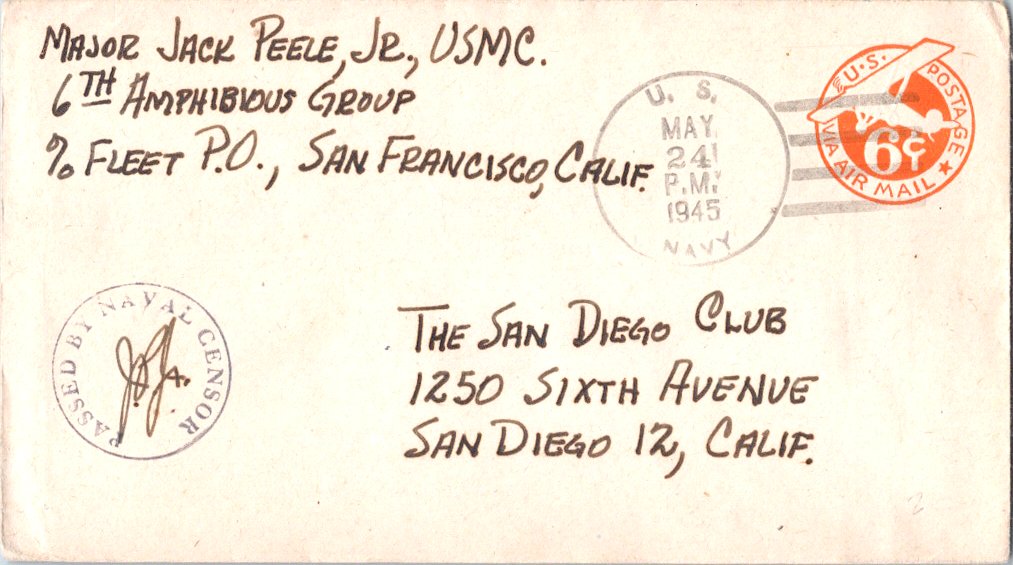 MAJOR JACK PEELE, JR., USMC.
6TH AMPHIBIOUS GROUP
℅ FLEET P.O., SAN FRANCISCO, CALIF.
U. S.
MAY
24
P.M.
1945
NAVY
U.S. POSTAGE
6¢
VIA AIR MAIL
PASSED BY NAVAL CENSOR
THE SAN DIEGO CLUB
1250 SIXTH AVENUE
SAN DIEGO 12, CALIF.